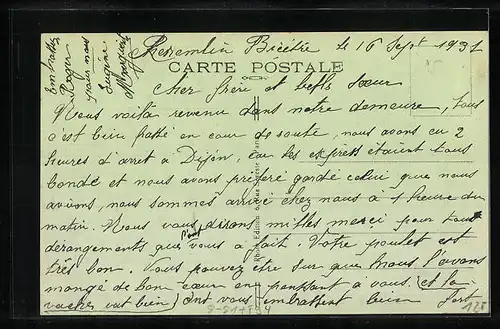 Kremlin Bicêtre le 16 Sept 1931
CARTE POSTALE
Cher frère et belle Sœur
Nous voilà revenu dans notre demeure, tous
c'est bien passé en cour de route, nous avons eu 2
heures d'arret a Dijon, car les express étaient tous
bondé et nous avons préféré gardé celui que nous
avions, nous sommes arrivé chez nous à 1 heure du
matin. Nous vous disons milles merci pour tous
dérangements que vous a fait. Votre poulet est
très bon. Vous pouvez être sur que nous l'avons
mangé de bon cœur en pensant a vous (et la
vache vat bien) ont vous embrassent bien fort
Embrassez
Roger
pour nous
Eugène
Marguerite